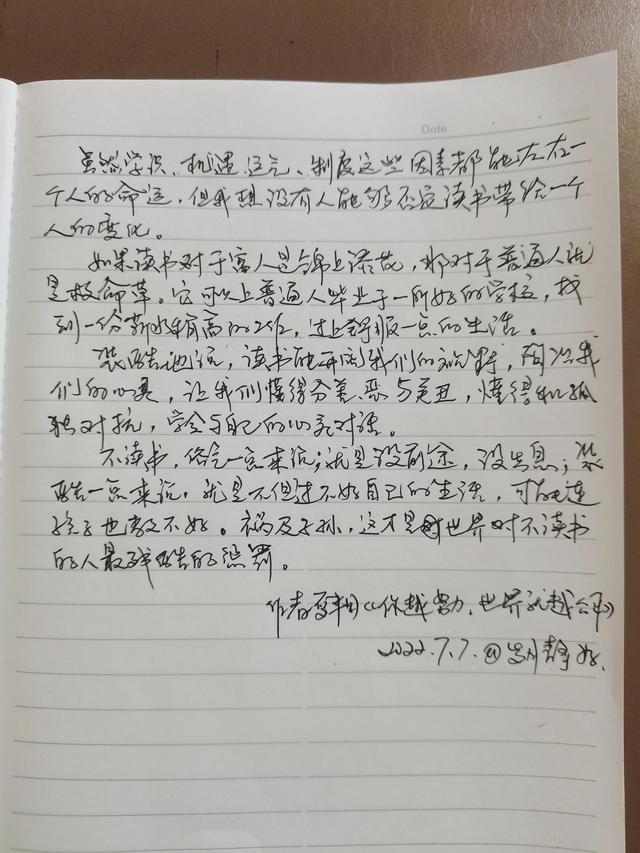 Date
虽然学识、机遇、运气、制度这些因素都能左右一
个人的命运，但我想没有人能够否定读书带给一个
人的变化。
如果读书对于富人是锦上添花，那对于普通人就
是救命草。它可以让普通人毕业于一所好的学校，找
到一份薪水稍高的工作，过上舒服一点的生活。
装酷地说，读书能开阔我们的视野，
们的心灵，让我们懂得分善恶与美丑，懂得和孤
独对抗，学会与自己的心灵对话。
不读书，俗气一点来说：就是没前途，没出息；装
酷一点来说：就是不但过不好自己的生活，可能连
孩子也教不好。祸及子孙，这才是世界对不读书
的人最残酷的惩罚。
作者《你越努力，世界就越公平》
2022.7.7.@岁月静好.